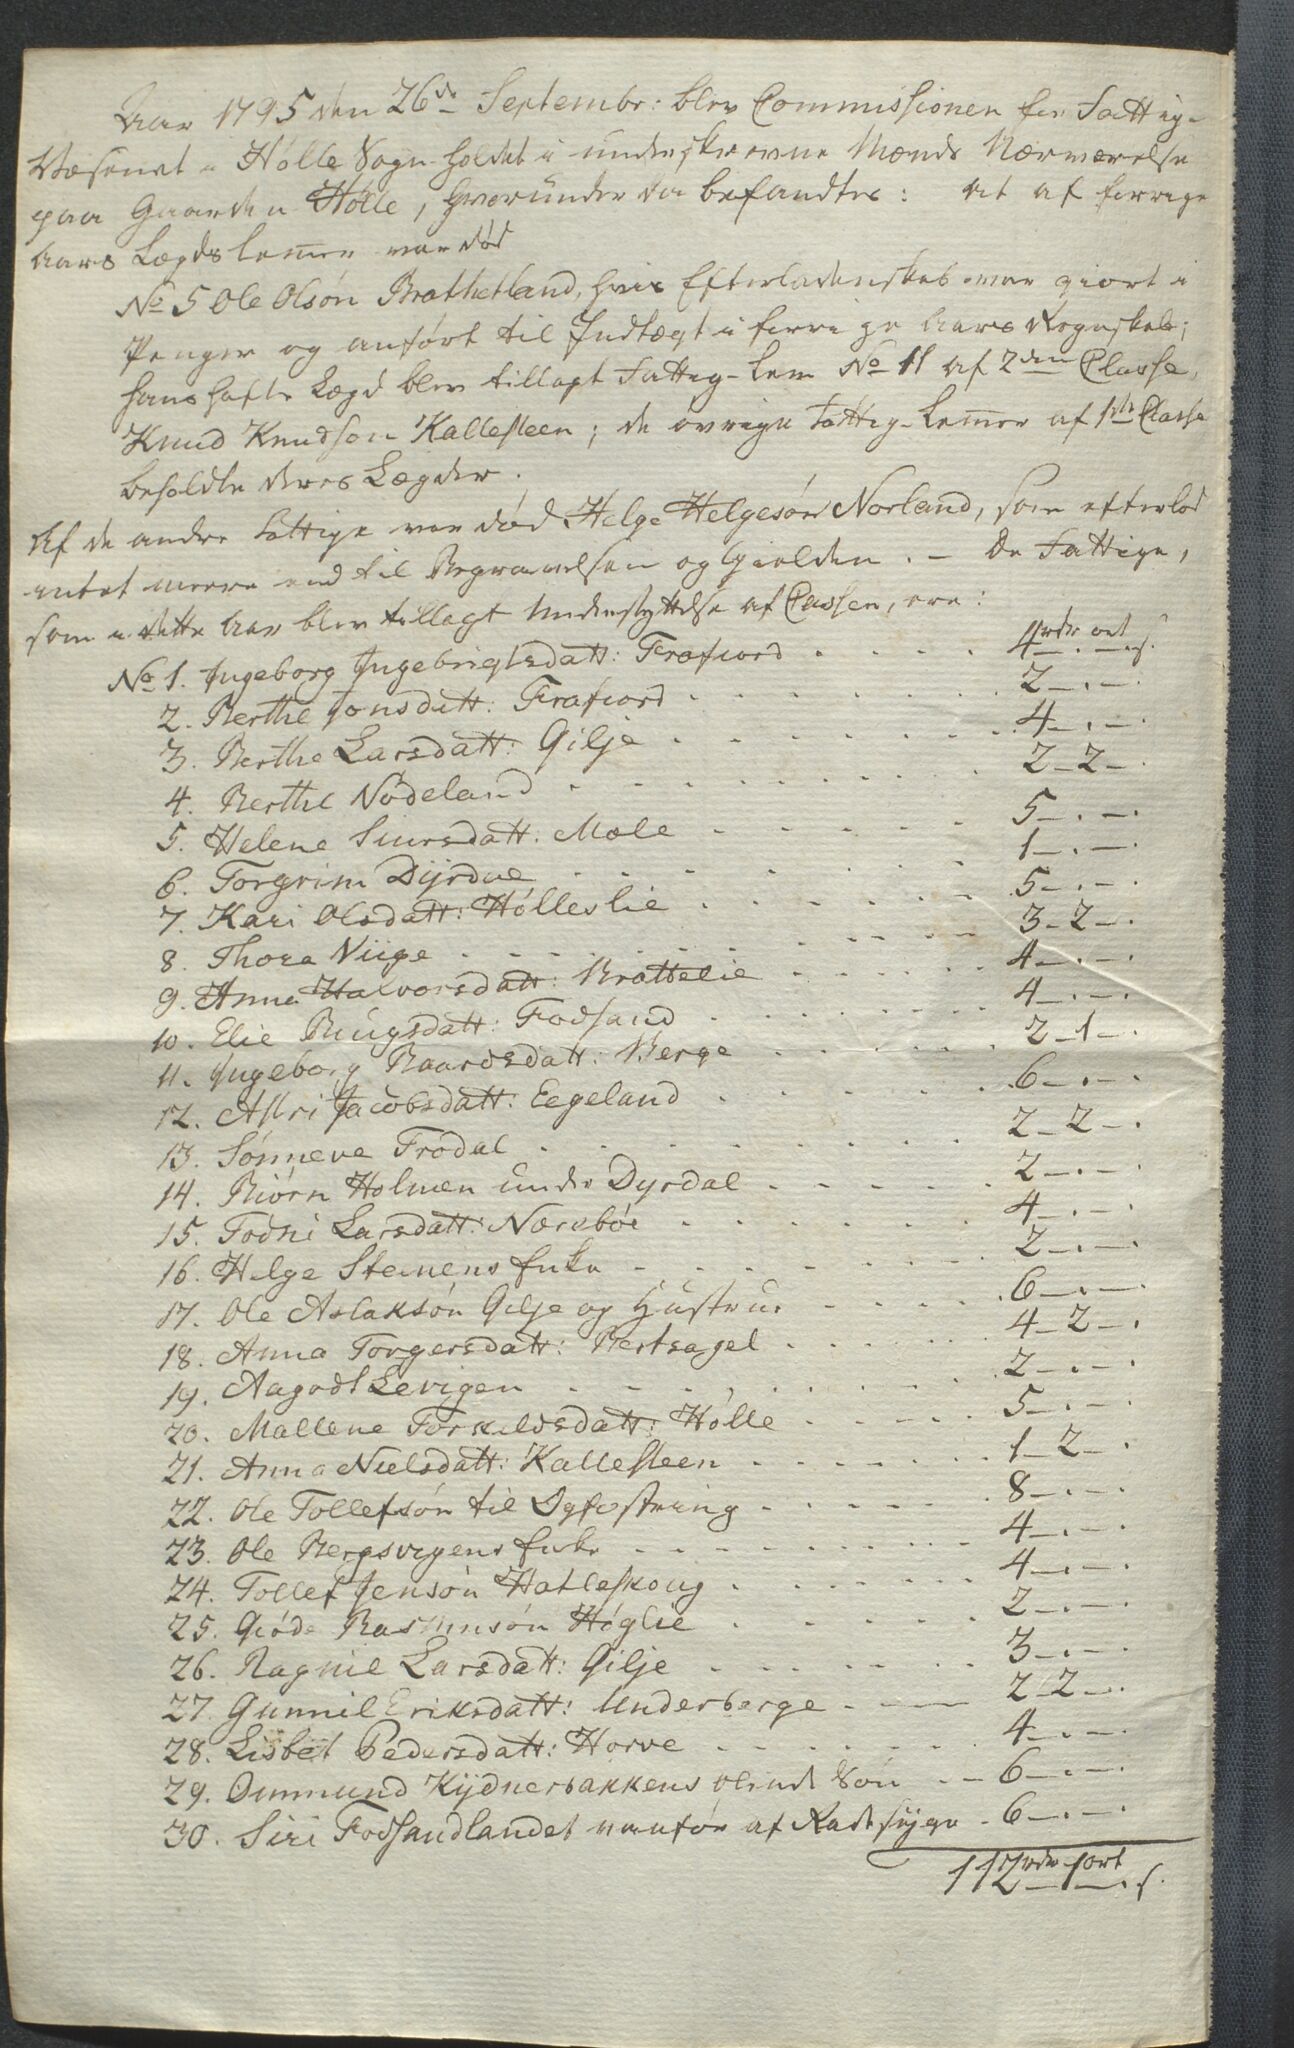 Aar 1795 den 26de Septembr: blev Commissionen for Fattig-
Væsenet i Hölle Sogn holdet i underskrevne Mænds Nærværelse
paa Gaarden Hölle, hvorunder da befandtes: At af forrige
Aars Lægdslem̄er var död
No 5 Ole Olsön Brathetland, hvis Efterladenskab var giort i
Penger og anfört til Indtægt i forrige Aars Regnskab;
hans hafte Lægd blev tillagt Fattig-Lem No 11 af 2den Classe,
Knud Knudson Kallesteen; de övrige Fattig-Lem̄er af 1ste Classe
beholdte deres Lægder.
Af de andre Fattige var död Helge Helgesön Norland, som efterlod
intet meere end til Begravelsen og Gielden. - De Fattige,
som i dette Aar blev tillagt Understyttelse af Cassen, ere:
No 1. Ingeborg Ingebrigtsdatt: Frafiord . . . . 4 rdr . ort . s.
2. Berthe Jonsdatt: Frafiord . . . . 2 - . - .
3. Berthe Larsdatt: Gilje . . . . 4 - . - .
4. Berthe Nödeland . . . . 2 - 2 - .
5. Helene Siursdatt: Mæle . . . . 5 - . - .
6. Torgrim Dÿrdal . . . . 1 - . - .
7. Kari Olsdatt: Hölleslie . . . . 5 - . - .
8. Thora Viige . . . . 3 - 2 - .
9. Anna Halvorsdatt: Brattelie . . . . 4 - . - .
10. Elie Bÿgsdatt: Fodsand . . . . 4 - . - .
11. Ingeborg Baardsdatt: Berge . . . . 2 - 1 - .
12. Astri Jacobsdatt: Eegeland . . . . 6 - . - .
13. Sönneve Frödal . . . . 2 - 2 - .
14. Biörn Holmen under Dyrdal . . . . 2 - . - .
15. Todni Larsdatt: Næreböe . . . . 4 - . - .
16. Helge Steinens Enke . . . . 2 - . - .
17. Ole Aslaksön Gilje og Hustrue . . . . 6 - . - .
18. Anna Torgersdatt: Bertsagel . . . . 4 - 2 - .
19. Aagodt Levigen . . . . 2 - . - .
20. Mallene Torkildsdatt: Hölle . . . . 5 - . - .
21. Anna Nielsdatt: Kallesteen . . . . 1 - 2 - .
22. Ole Tollefsön til Opfostring . . . . 8 - . - .
23. Ole Bergsvigens Enke . . . . 4 - . - .
24. Tollef Jensön Hatleskoug . . . . 4 - . - .
25. Giöde Rasmusön Höglie . . . . 2 - . - .
26. Ragnil Larsdatt: Gilje . . . . 3 - . - .
27. Gunnil Eriksdatt: Underberge . . . . 2 - 2 - .
28. Lisbet Pedersdatt: Horve . . . . 4 - . - .
29. Gunmund Kÿdnerbakkens blinde Sön . - - 6 - . - .
30. Siri Fodsandlandet vanför af Radesÿge - 6 - . - .
112 rdr 1 ort . s.